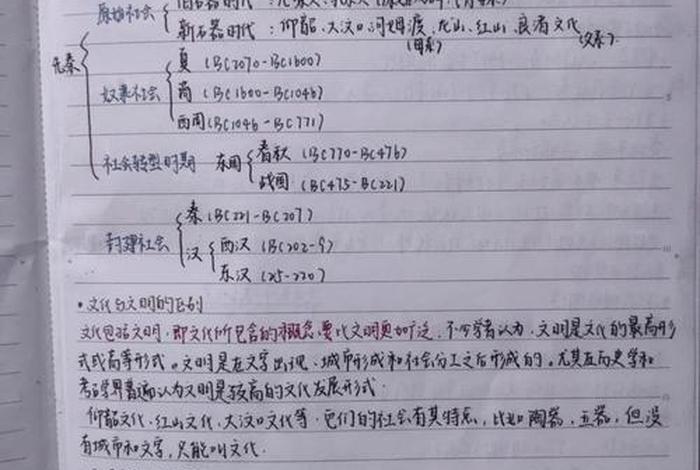 原始社会
新石器时代:仰韶、大汶口、河姆渡、龙山、红山、良渚文化
(母系) (父系)
先秦
夏(BC2070-BC1600)
奴隶社会 商(BC1600-BC1046)
西周(BC1046-BC771)
社会转型时期 东周 春秋(BC770-BC476)
战国(BC475-BC221)
秦(BC221-BC207)
封建社会 汉 西汉(BC202-9)
东汉(25-220)
·文化与文明的区别
文化包括文明,即文化所包含的概念要比文明更加广泛,不少学者认为,文明是文化的最高形
式或高等形式。文明是在文字出现、城市形成和社会分工之后形成的。尤其在历史学和
考古学界普遍认为文明是较高的文化发展形式.
仰韶文化、红山文化、大汶口文化等,它们的社会有其特点,比如陶器、玉器,但没
有城市和文字,只能叫文化.